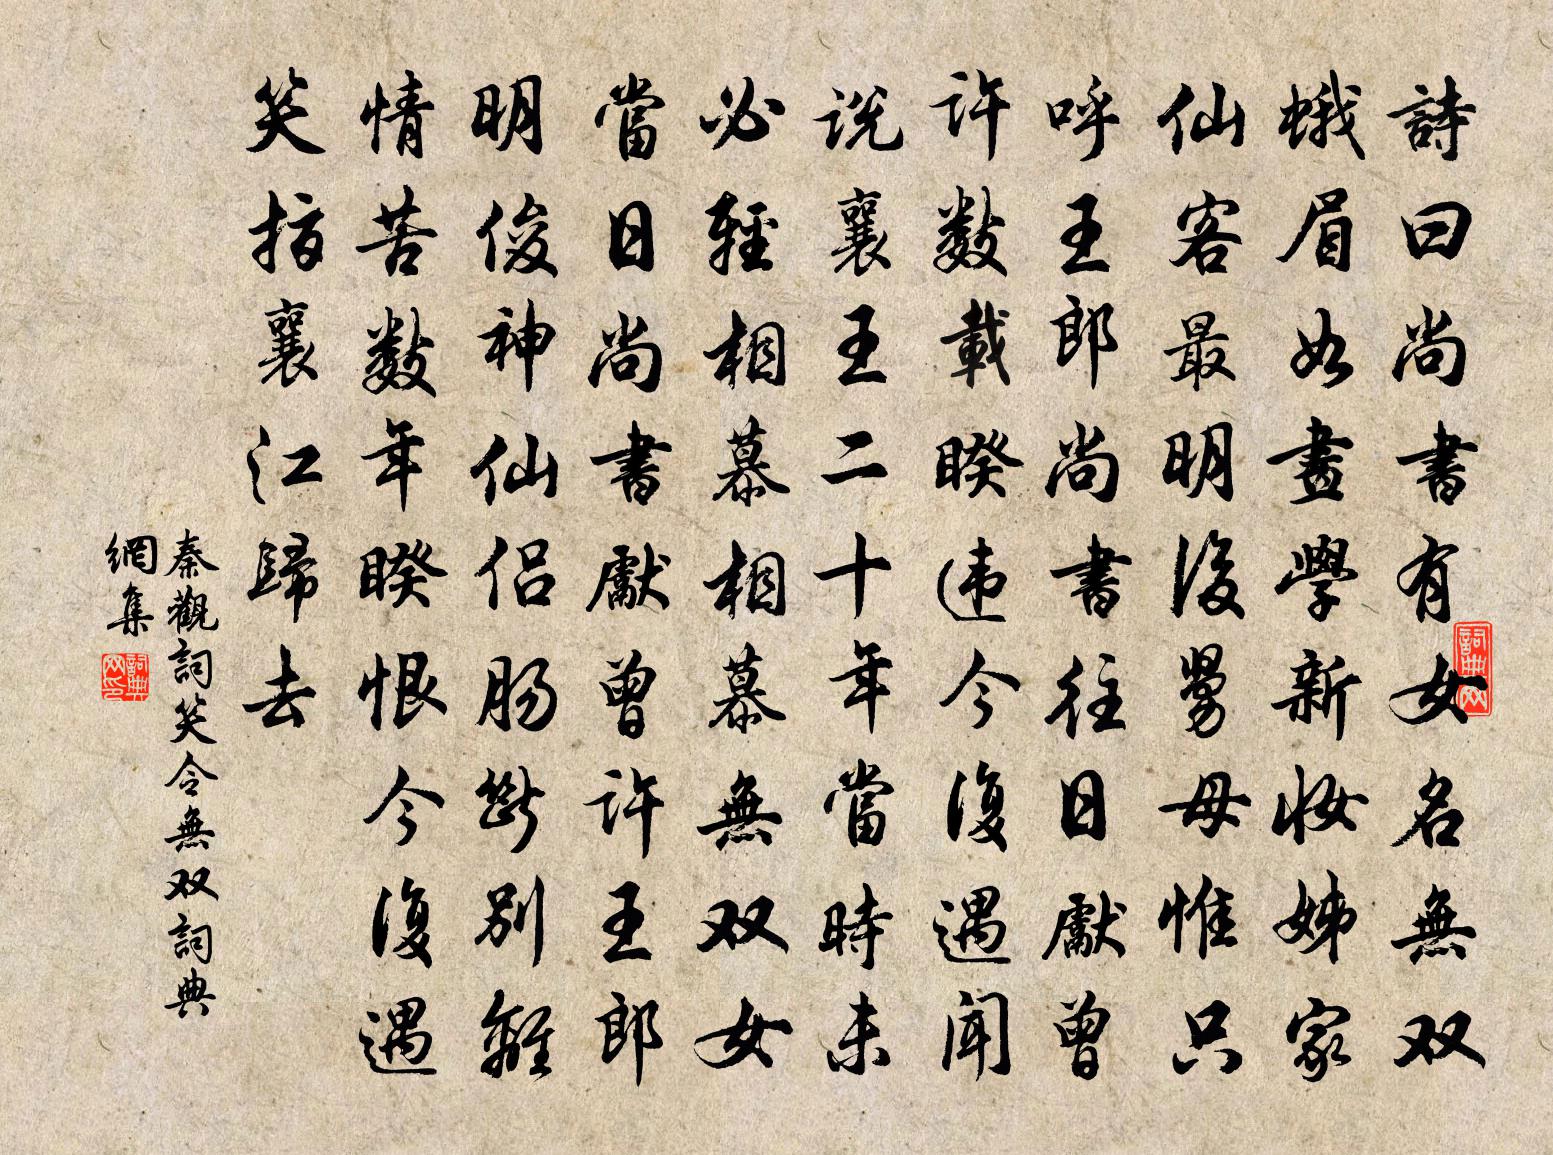 詩曰尚書有女名無双
蛾眉如畫學新妝姊家
仙客最明俊舅母惟只
呼王郎尚書往日獻曾
許數載睽违今復遇闻
説襄王二十年當時未
必輕相慕相慕無双女
當日尚書獻曾許王郎
明俊神仙侣肠斷别離
情苦數年睽恨今復遇
笑指襄江歸去
秦觀詞笑令無双詞典
網集
詞典网
詞典网印